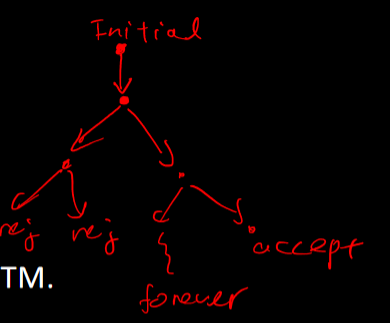 Initial
rej rej
accept
TM.
forever